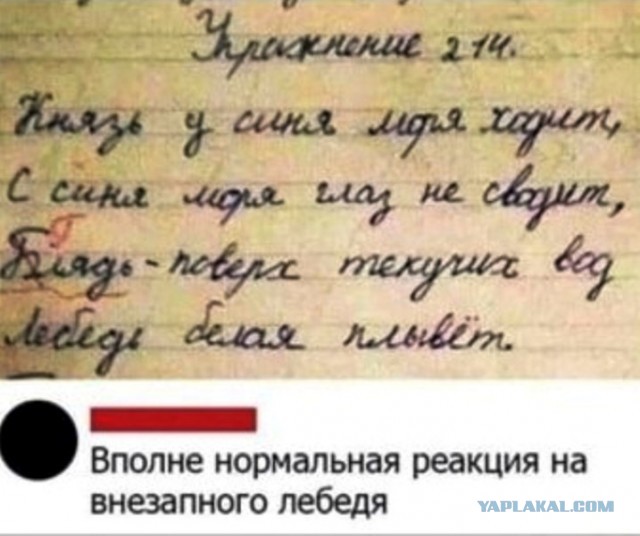 Упражнение 214.
Князь у синя моря ходит,
С синя моря глаз не сводит,
Г
Блядь - поверх текучих вод
Лебедь белая плывёт.
Вполне нормальная реакция на
внезапного лебедя
YAPLAKAL.COM